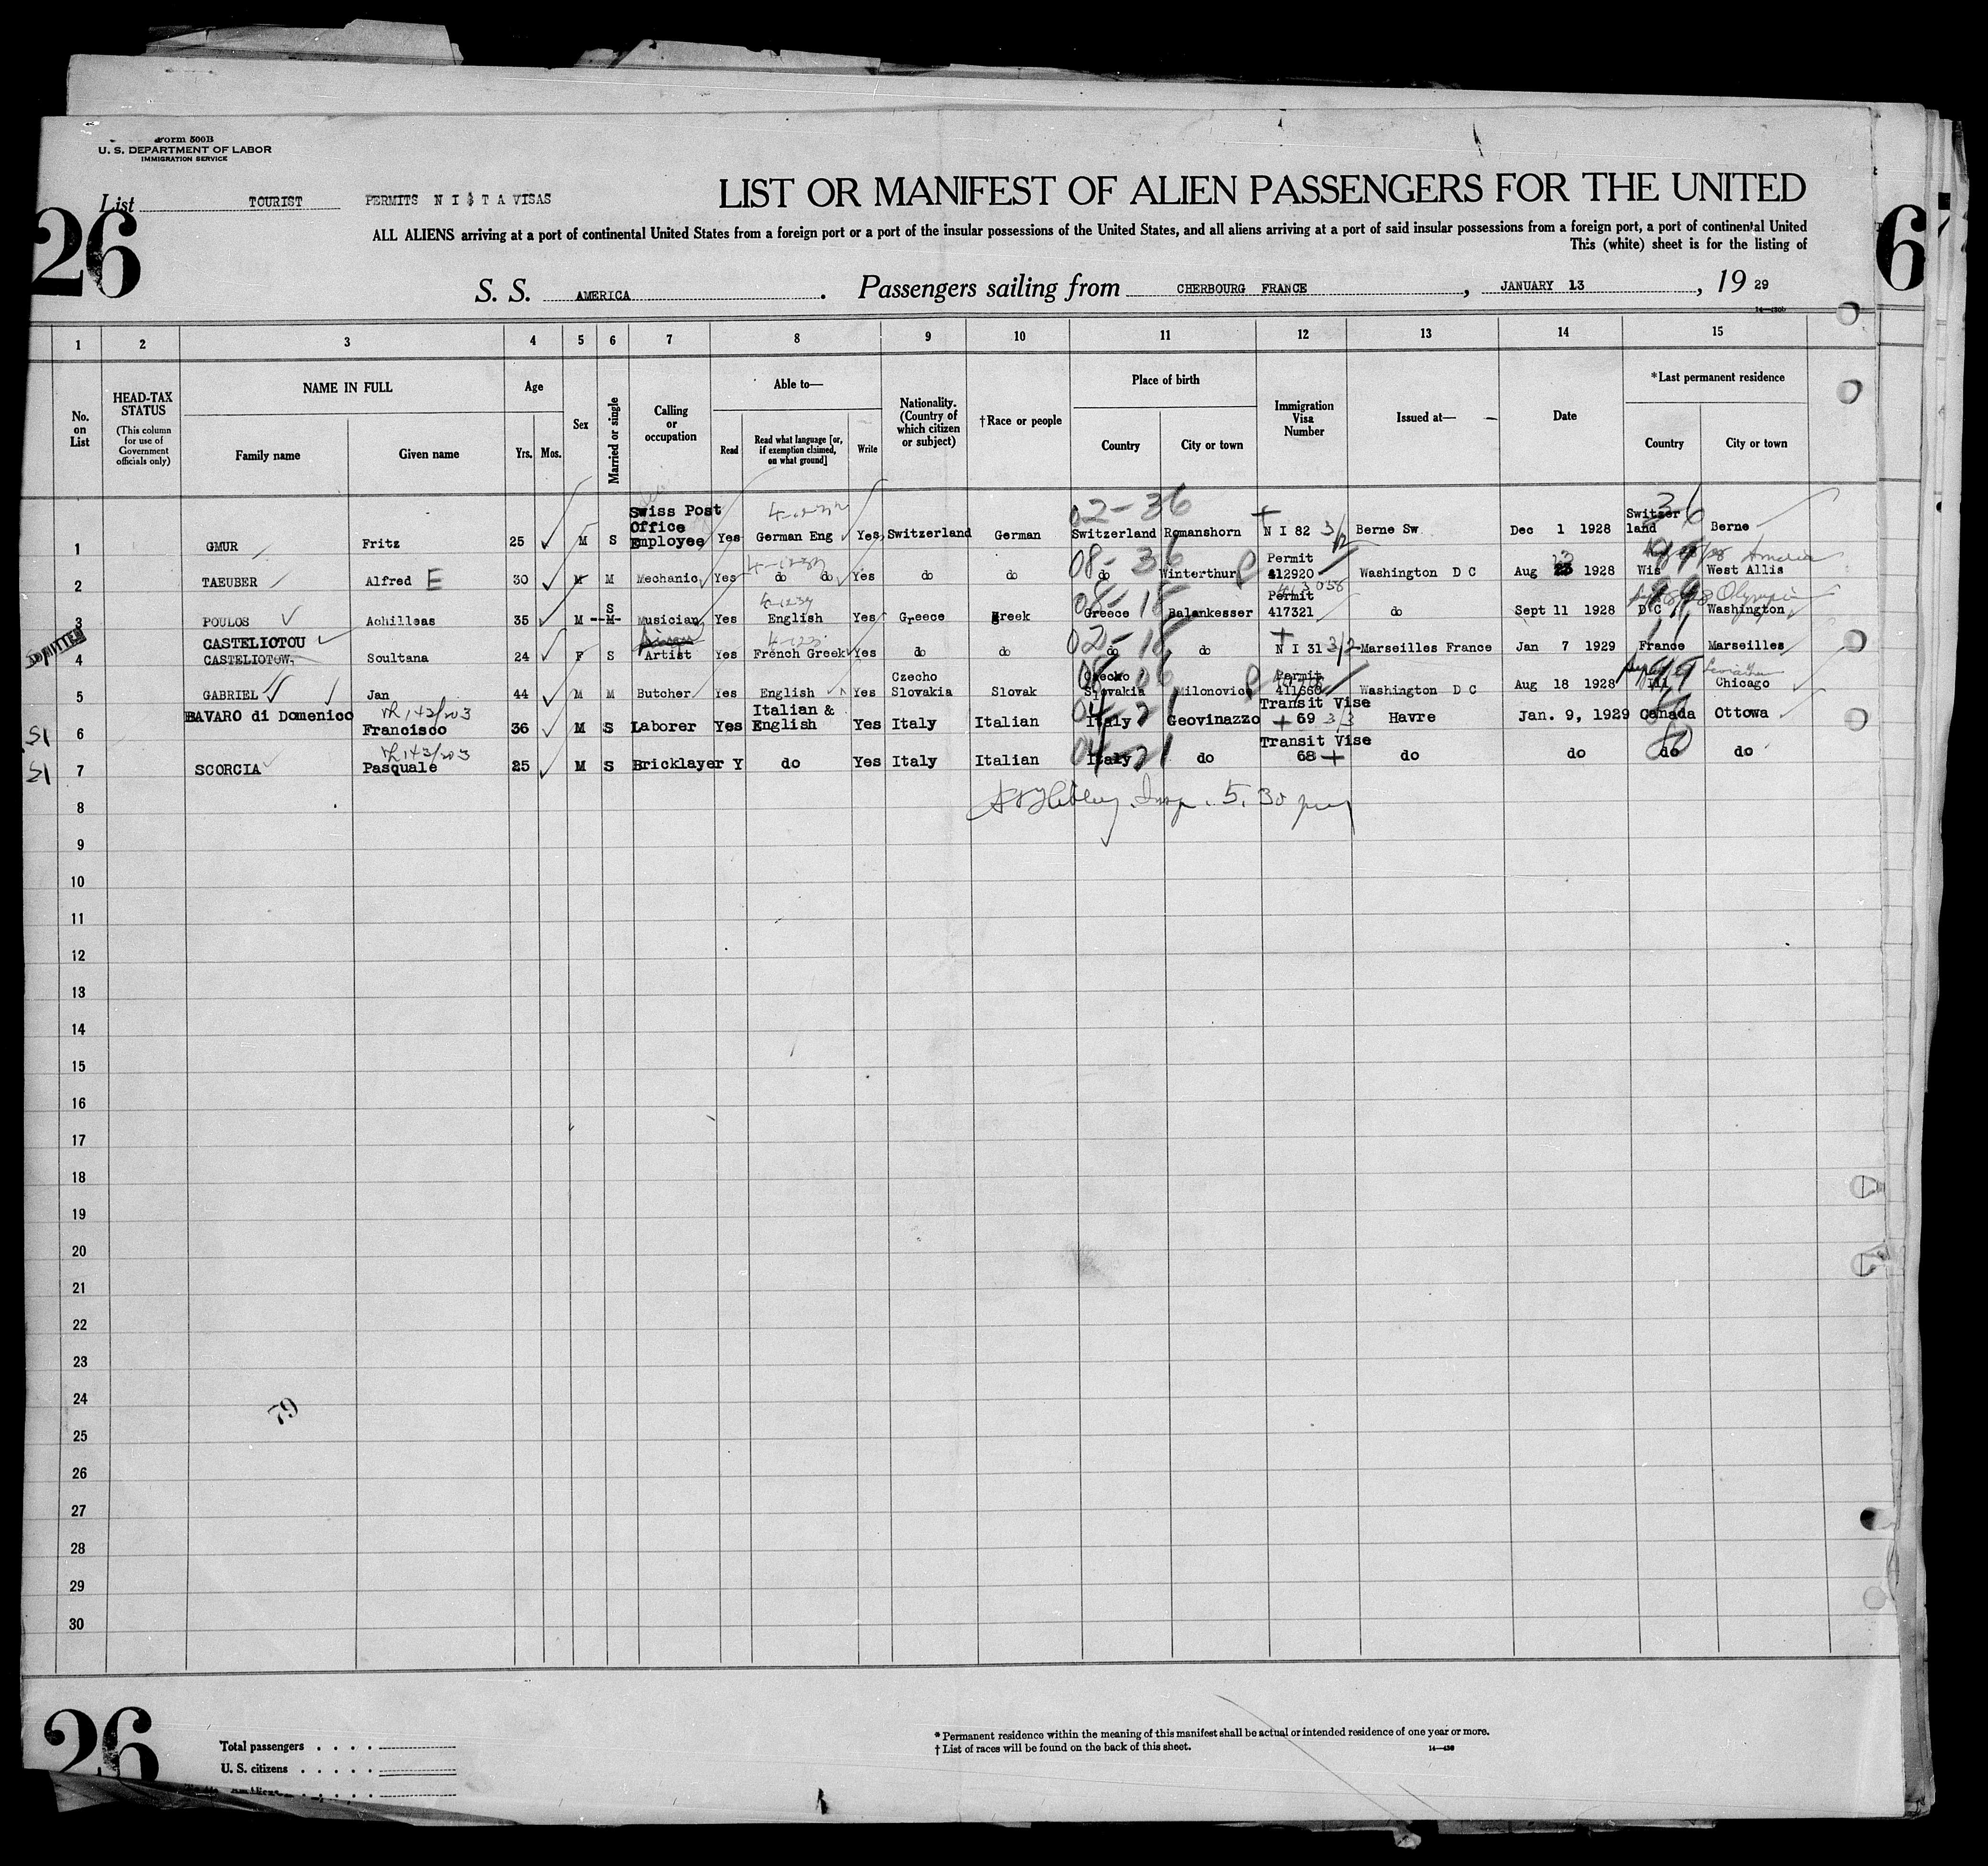 Form 500B
U. S. DEPARTMENT OF LABOR
IMMIGRATION SERVICE
List TOURIST PERMITS N I & T A VISAS
26
LIST OR MANIFEST OF ALIEN PASSENGERS FOR THE UNITED
ALL ALIENS arriving at a port of continental United States from a foreign port or a port of the insular possessions of the United States, and all aliens arriving at a port of said insular possessions from a foreign port, a port of continental United
This (white) sheet is for the listing of
6
S. S. AMERICA. Passengers sailing from CHERBOURG FRANCE, JANUARY 13, 19 29
1 2 3 4 5 6 7 8 9 10 11 12 13 14 15
No. on List
HEAD-TAX STATUS
(This column for use of Government officials only)
NAME IN FULL
Family name Given name
Age
Yrs. Mos.
Sex
Married or single
Calling or occupation
Able to—
Read
Read what language [or, if exemption claimed, on what ground]
Write
Nationality. (Country of which citizen or subject)
†Race or people
Place of birth
Country City or town
Immigration Visa Number
Issued at—
Date
*Last permanent residence
Country City or town
02-36 36
1 GMUR Fritz 25 M S Swiss Post Office Employee Yes German Eng Yes Switzerland German Switzerland Romanshorn N I 82 3/2 Berne Sw Dec 1 1928 Switzer land Berne
08-36
2 TAEUBER Alfred E 30 M M Mechanic Yes do do Yes do do do Winterthur Permit 412920 Washington D C Aug 23 1928 Wis West Allis
08-18 Olympic
3 POULOS Achilleas 35 M --M- S Musician Yes English Yes Greece Greek Greece Balankesser Permit 417321 do Sept 11 1928 D C Washington
ADMITTED
02-18
4 CASTELIOTOU CASTELIOTOW Soultana 24 F S Artist Yes French Greek Yes do do do do N I 31 3/2 Marseilles France Jan 7 1929 France Marseilles
08-06 Leviathan
5 GABRIEL Jan 44 M M Butcher Yes English Yes Czecho Slovakia Slovak Czecho Slovakia Milonovic Permit 411660 Washington D C Aug 18 1928 Ill Chicago
04-21
SI 6 BAVARO di Domenico Francisco 36 M S Laborer Yes Italian & English Yes Italy Italian Italy Geovinazzo Transit Vise 69 3/3 Havre Jan. 9, 1929 Canada Ottowa
04-21
SI 7 SCORCIA Pasquale 25 M S Bricklayer Y do Yes Italy Italian Italy do Transit Vise 68 do do do do
Insp. 5.30 pm
8
9
10
11
12
13
14
15
16
17
18
19
20
21
22
23
24
79
25
26
27
28
29
30
26
Total passengers
U. S. citizens
* Permanent residence within the meaning of this manifest shall be actual or intended residence of one year or more.
† List of races will be found on the back of this sheet.